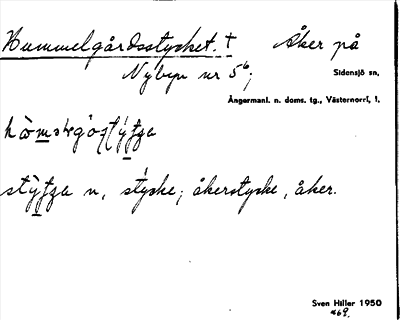 Hummelgårdsstycket. † Åker på
Nybyn nr 5⁶;
Sidensjö sn,
Ångermanl. n. doms. lg., Västernorrl. l.
stycke; åkerstycke, åker.
Sven Hiller 1950